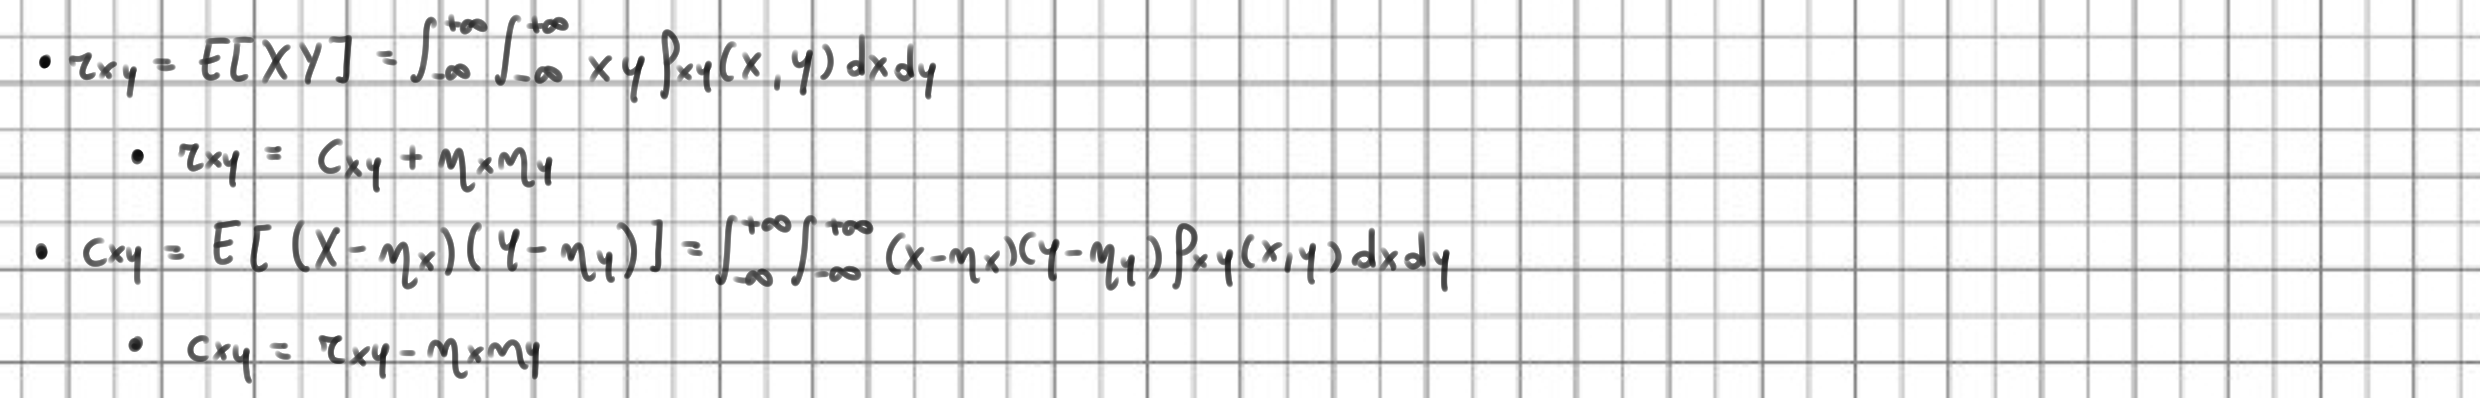 • r_xy = E[XY] = ∫_{-∞}^{+∞} ∫_{-∞}^{+∞} xy f_xy(x,y) dxdy
• r_xy = c_xy + η_x η_y
• c_xy = E[(X-η_x)(Y-η_y)] = ∫_{-∞}^{+∞} ∫_{-∞}^{+∞} (x-η_x)(y-η_y) f_xy(x,y) dxdy
• c_xy = r_xy - η_x η_y